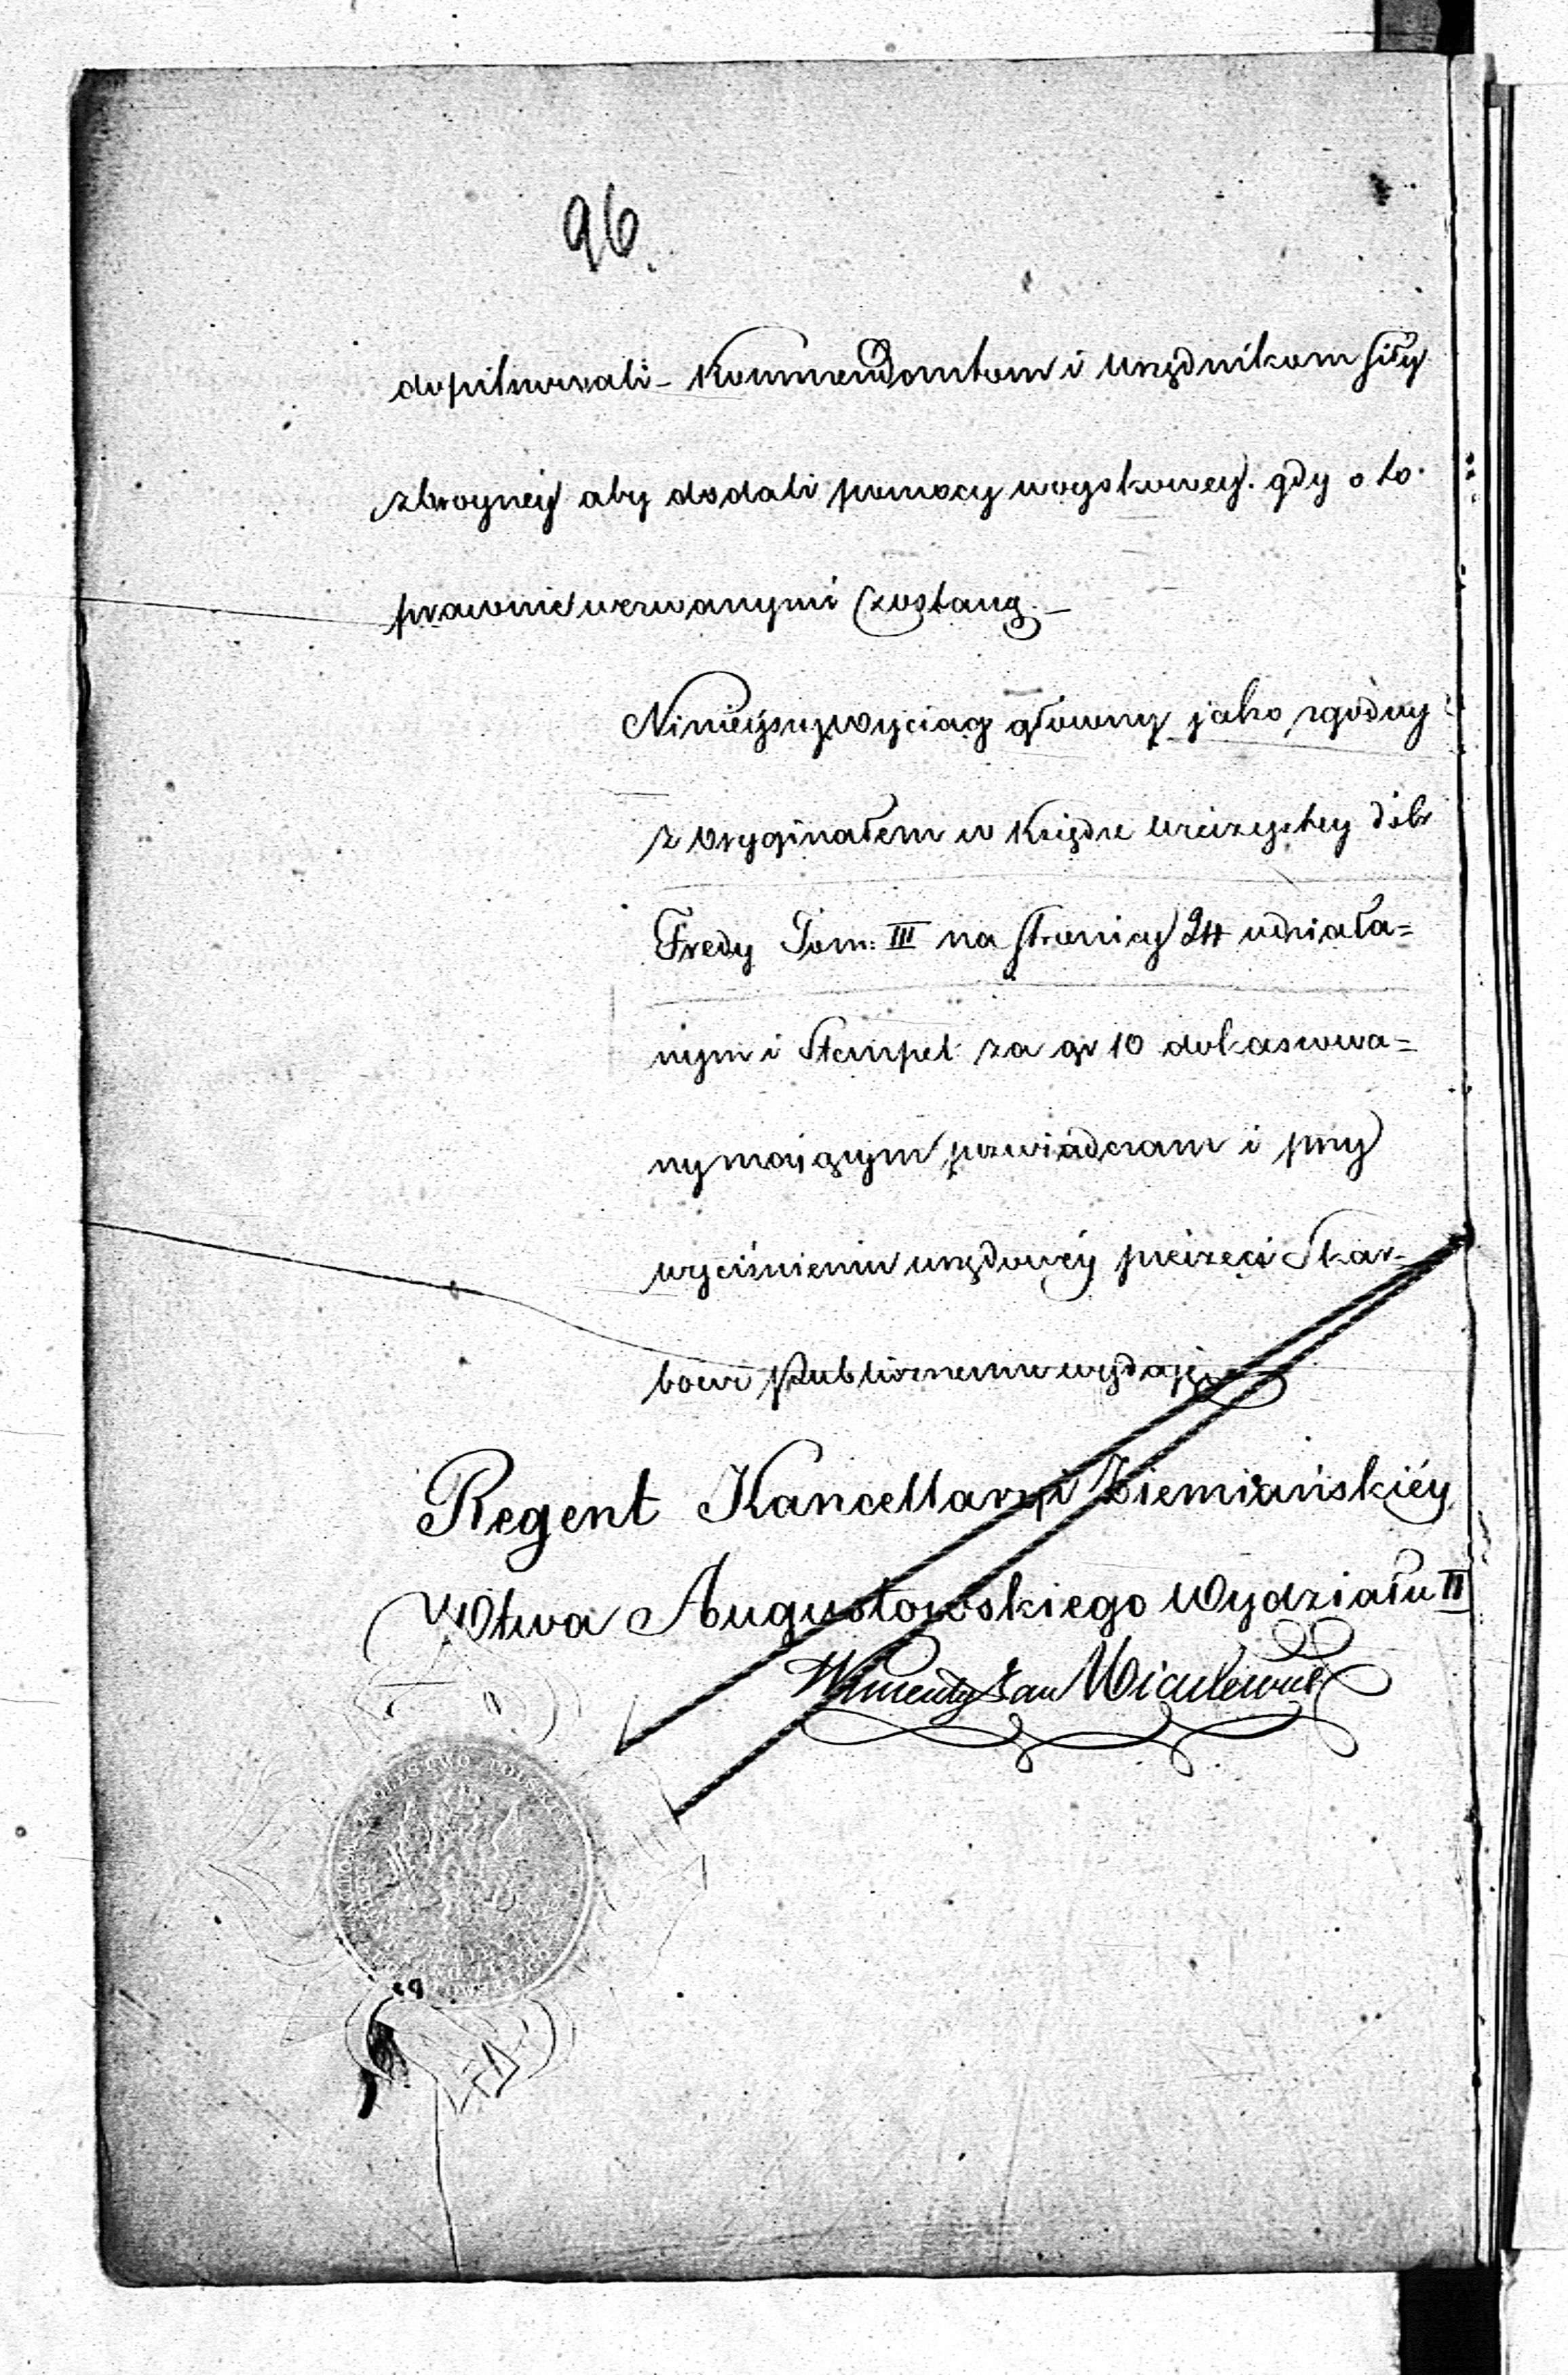 96.
dopilnowali – Kommendantom i Urzędnikom siły
zbroyney aby dodali pomocy woyskowey. gdy o to
prawnie wezwanymi zostaną. –
Ninieyszy wyciąg główny jako zgodny
z Oryginałem w Księdze wieczystey dóbr
Fredy Tom: III na stronicy 24 udziała=
nym i Stempel za gr 10 dokassowa=
ny maiącym poswiadczam i przy
wyciśnieniu urzędowéy pieczęci Skar-
bowi Publicznemu wydaję
Regent Kancellaryi Ziemiańskiéy
Wötwa Augustowskiego Wydziału II
Wincenty Jan
KROLESTWO POLSKIE